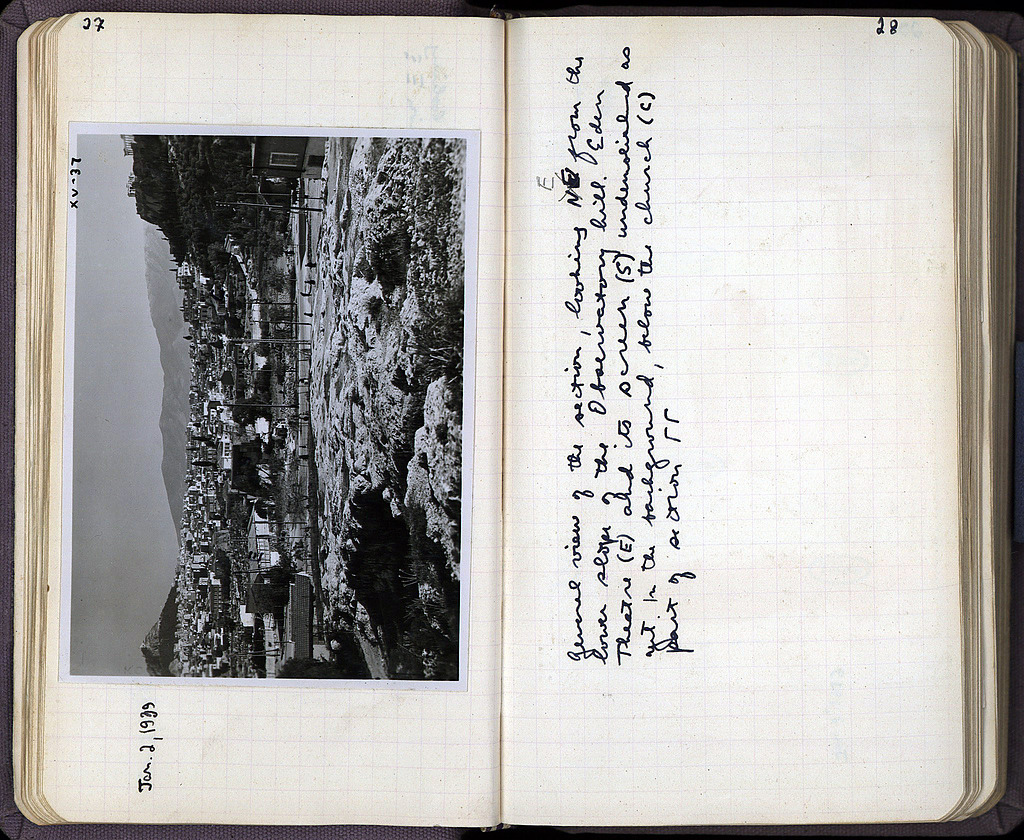 27
XV-37
Jan. 2, 1939
28
General view of the section, looking NE from the
E
lower slope of the Observatory hill. Eden
Theatre (E) and its screen (S) undemolished as
yet. In the background, below the church (C)
part of section ΓΓ